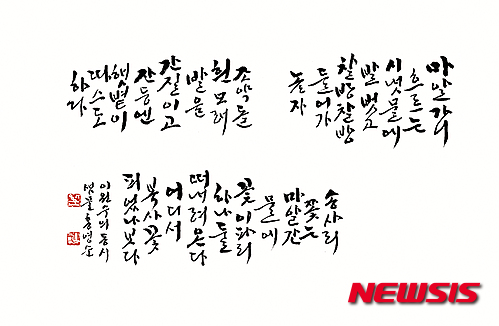 마알가니
흐르는
시냇물에
발 벗고
찰방찰방
들어가
놀자
조약돌
흰 모래
발을
간질이고
잔등엔
햇볕이
따스도
하다
송사리
쫓는
마알간
물에
꽃이파리
하나둘
떠내려온다
어디서
복사꽃
피었나보다
이원수의 동시
NEWSIS